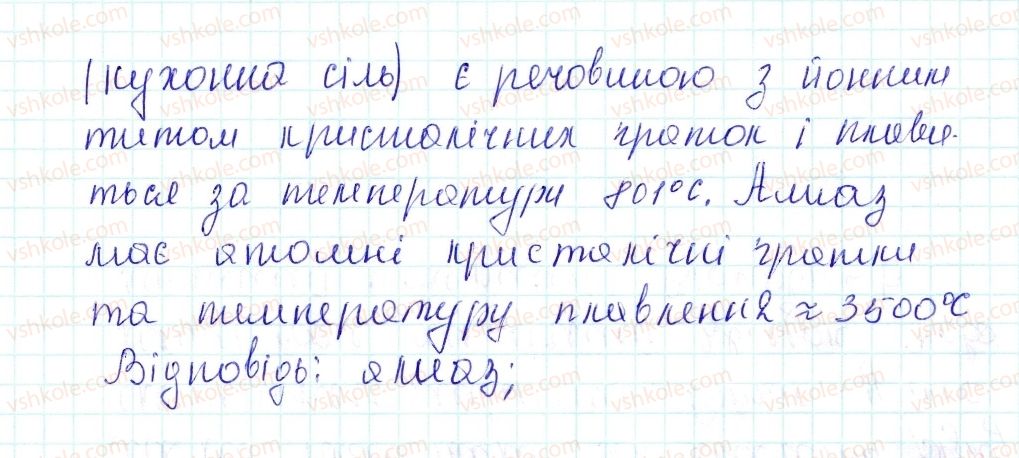 (кухонна сіль) є речовиною з йонним
типом кристалічних ґраток і плави-
ться за температури 801°С. Алмаз
має атомні кристалічні ґратки
та температуру плавлення ≈ 3500°С
Відповідь: алмаз;